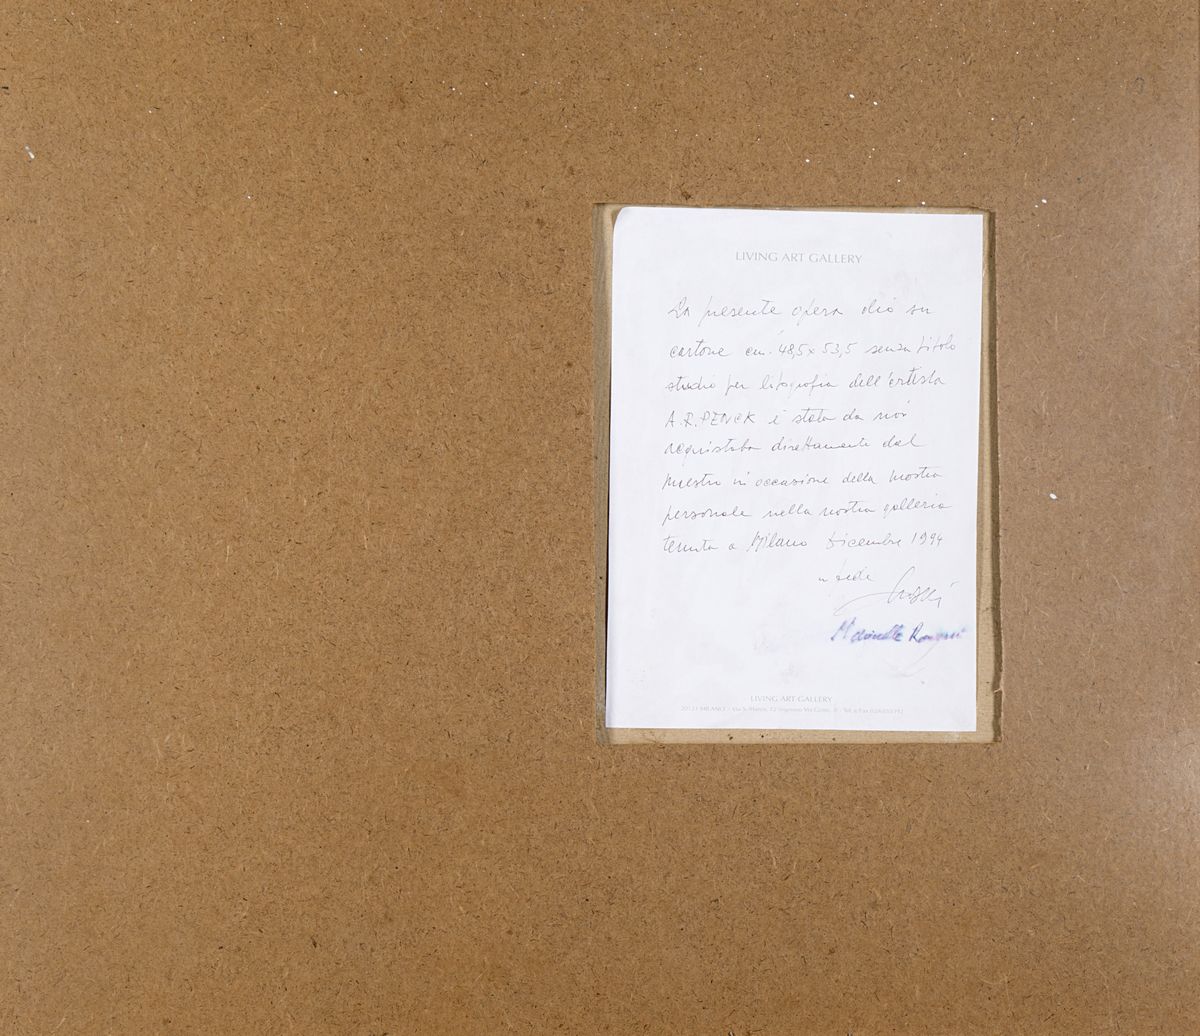 LIVING ART GALLERY
La presente opera olio su
cartone cm. 48,5 x 53,5 senza titolo
studio per litografia dell'artista
A.R. PENCK è stata da noi
acquistata direttamente dal
maestro in occasione della mostra
personale nella nostra galleria
tenuta a Milano Dicembre 1994
in fede
LIVING ART GALLERY
20121 MILANO - Via S. Marco, 12 Ingresso Via Goito, - Tel. e Fax